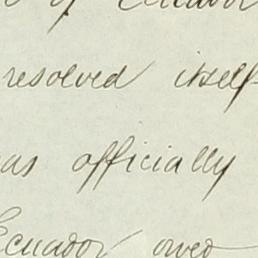 of Ecuador
resolved itself
as officially
Ecuador owed